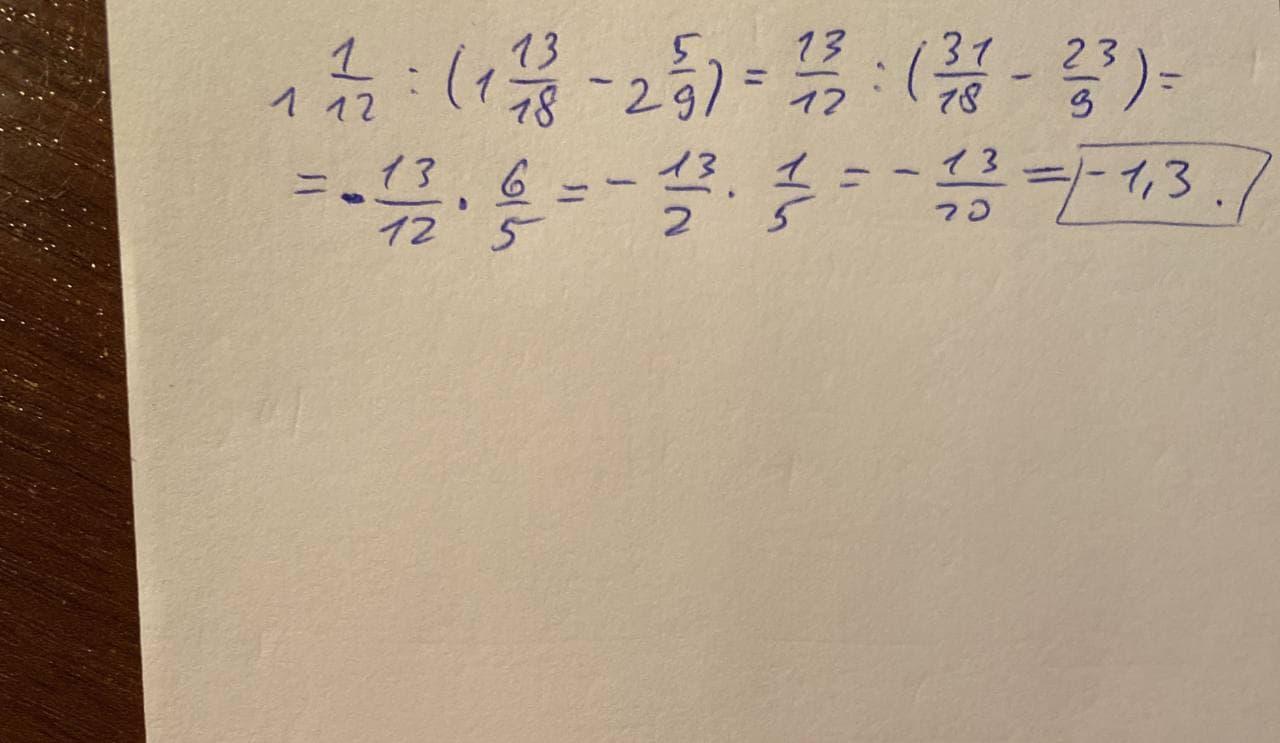 1 1/12 : (1 13/18 - 2 5/9) = 13/12 : (31/18 - 23/9) =
= - 13/12 · 6/5 = - 13/2 · 1/5 = - 13/10 = -1,3.